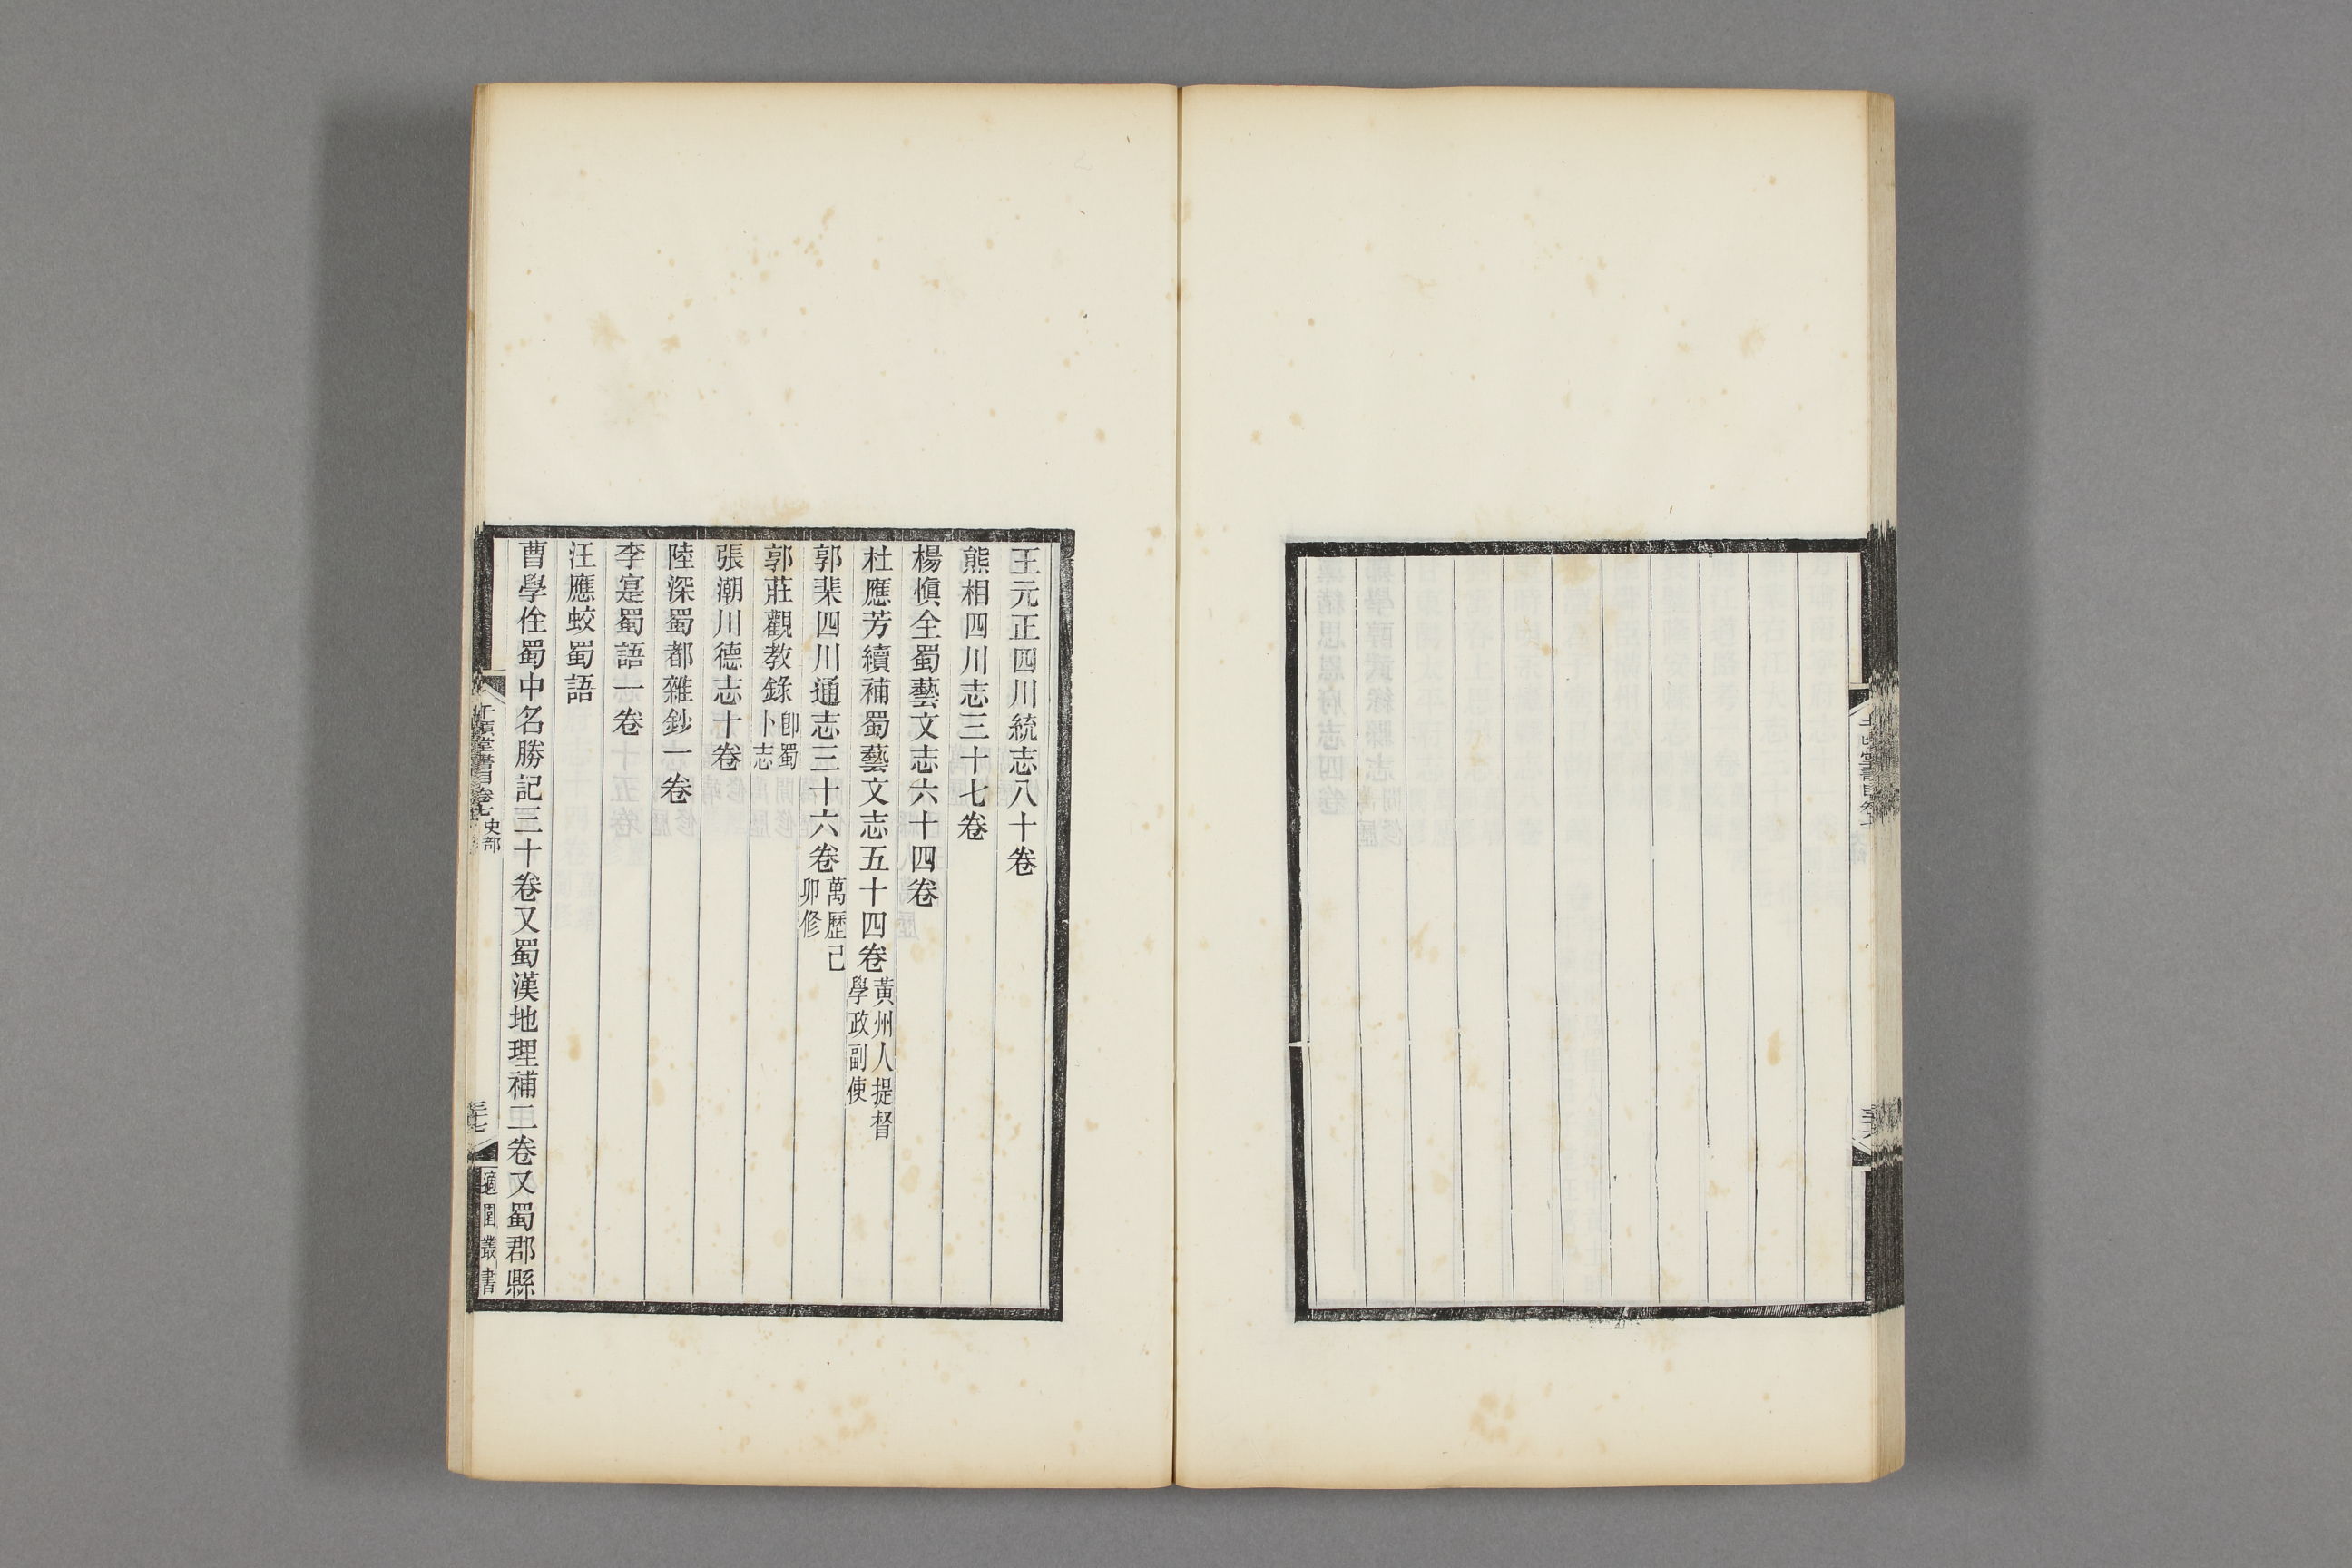 王元正四川統志八十卷
熊相四川志三十七卷
楊愼全蜀藝文志六十四卷
杜應芳續補蜀藝文志五十四卷黃州人提督學政副使
郭棐四川通志三十六卷萬歷己卯修
郭莊觀教錄卽蜀卜志
張潮川德志十卷
陸深蜀都雜鈔一卷
李寔蜀語一卷
汪應蛟蜀語
曹學佺蜀中名勝記三十卷又蜀漢地理補二卷又蜀郡縣
千頃堂書目卷七 史部
三十七
適園叢書